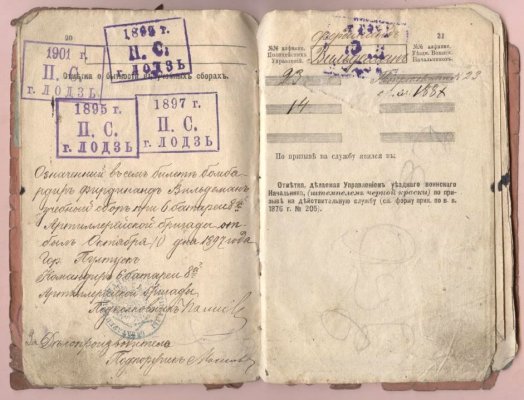 20
1901 г.
П. С.
г. ЛОДЗЬ
1898 г.
П. С.
г. ЛОДЗЬ
Отмѣтка о бытности въ учебныхъ сборахъ.
1895 г.
П. С.
г. ЛОДЗЬ
1897 г.
П. С.
г. ЛОДЗЬ
Означенный въ семъ билетѣ бомбар-
диръ Фердинандъ Вильдеманъ
учебный сборъ при 6 батареи 8й
Артиллерійской бригады от-
былъ Октября 10 дня 1897 года
Гор. Пултускъ
Командиръ 6 батареи 8й
Артиллерійской бригады
Подполковникъ
За Дѣлопроизводителя
Подпоручикъ
21
№№ алфавит.
Полицейскихъ
Управленій.
№№ алфавит.
Уѣздн. Воинск.
Начальниковъ.
23
23
14
По призыву на службу явился въ:
Отмѣтка, дѣлаемая Управленіемъ уѣзднаго воинскаго
Начальника, (штемпелемъ черной краски) по при-
зывѣ на дѣйствительную службу (см. форму прик. по в. в.
1876 г. № 205).